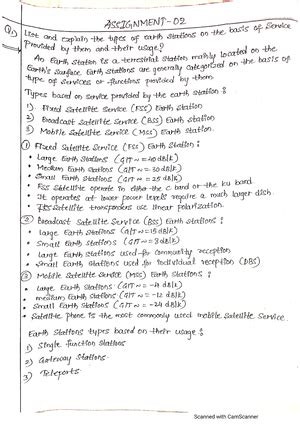 ASSIGNMENT-02
Q1) List and explain the types of earth stations on the basis of Service
Provided by them and their usage?
An Earth station is a terrestrial station mainly located on the
Earth's surface. Earth stations are generally categorized on the basis of
type of services or functions provided by them.
Types based on service provided by the earth station :
1) Fixed Satellite Service (FSS) Earth station
2) Broadcast Satellite Service (BSS) Earth station
3) Mobile Satellite Service (MSS) Earth station.
① Fixed Satellite Service (FSS) Earth stations :
• Large Earth Stations (G/T ≈ 40 dB/K)
• Medium Earth Stations (G/T ≈ 30 dB/K)
• Small Earth Stations (G/T ≈ 25 dB/K)
• FSS satellite operate in either the C band or the Ku band
• It operates at lower power levels require a much larger dish.
• FSS satellite transponders use linear polarization.
② Broadcast Satellite Service (BSS) Earth stations :
• Large Earth Stations (G/T ≈ 15 dB/K)
• Small Earth Stations (G/T ≈ 8 dB/K)
• Large Earth Stations used for community reception
• Small Earth Stations used for individual reception (DBS)
③ Mobile Satellite Service (MSS) Earth Stations :
• Large Earth Stations (G/T ≈ -4 dB/K)
• medium Earth Stations (G/T ≈ -12 dB/K)
• Small Earth Stations (G/T ≈ -24 dB/K)
• Satellite phone is the most commonly used mobile satellite Service.
Earth Stations types based on their usage :
1) Single function Stations
2) Gateway Stations.
3) Teleports
Scanned with CamScanner